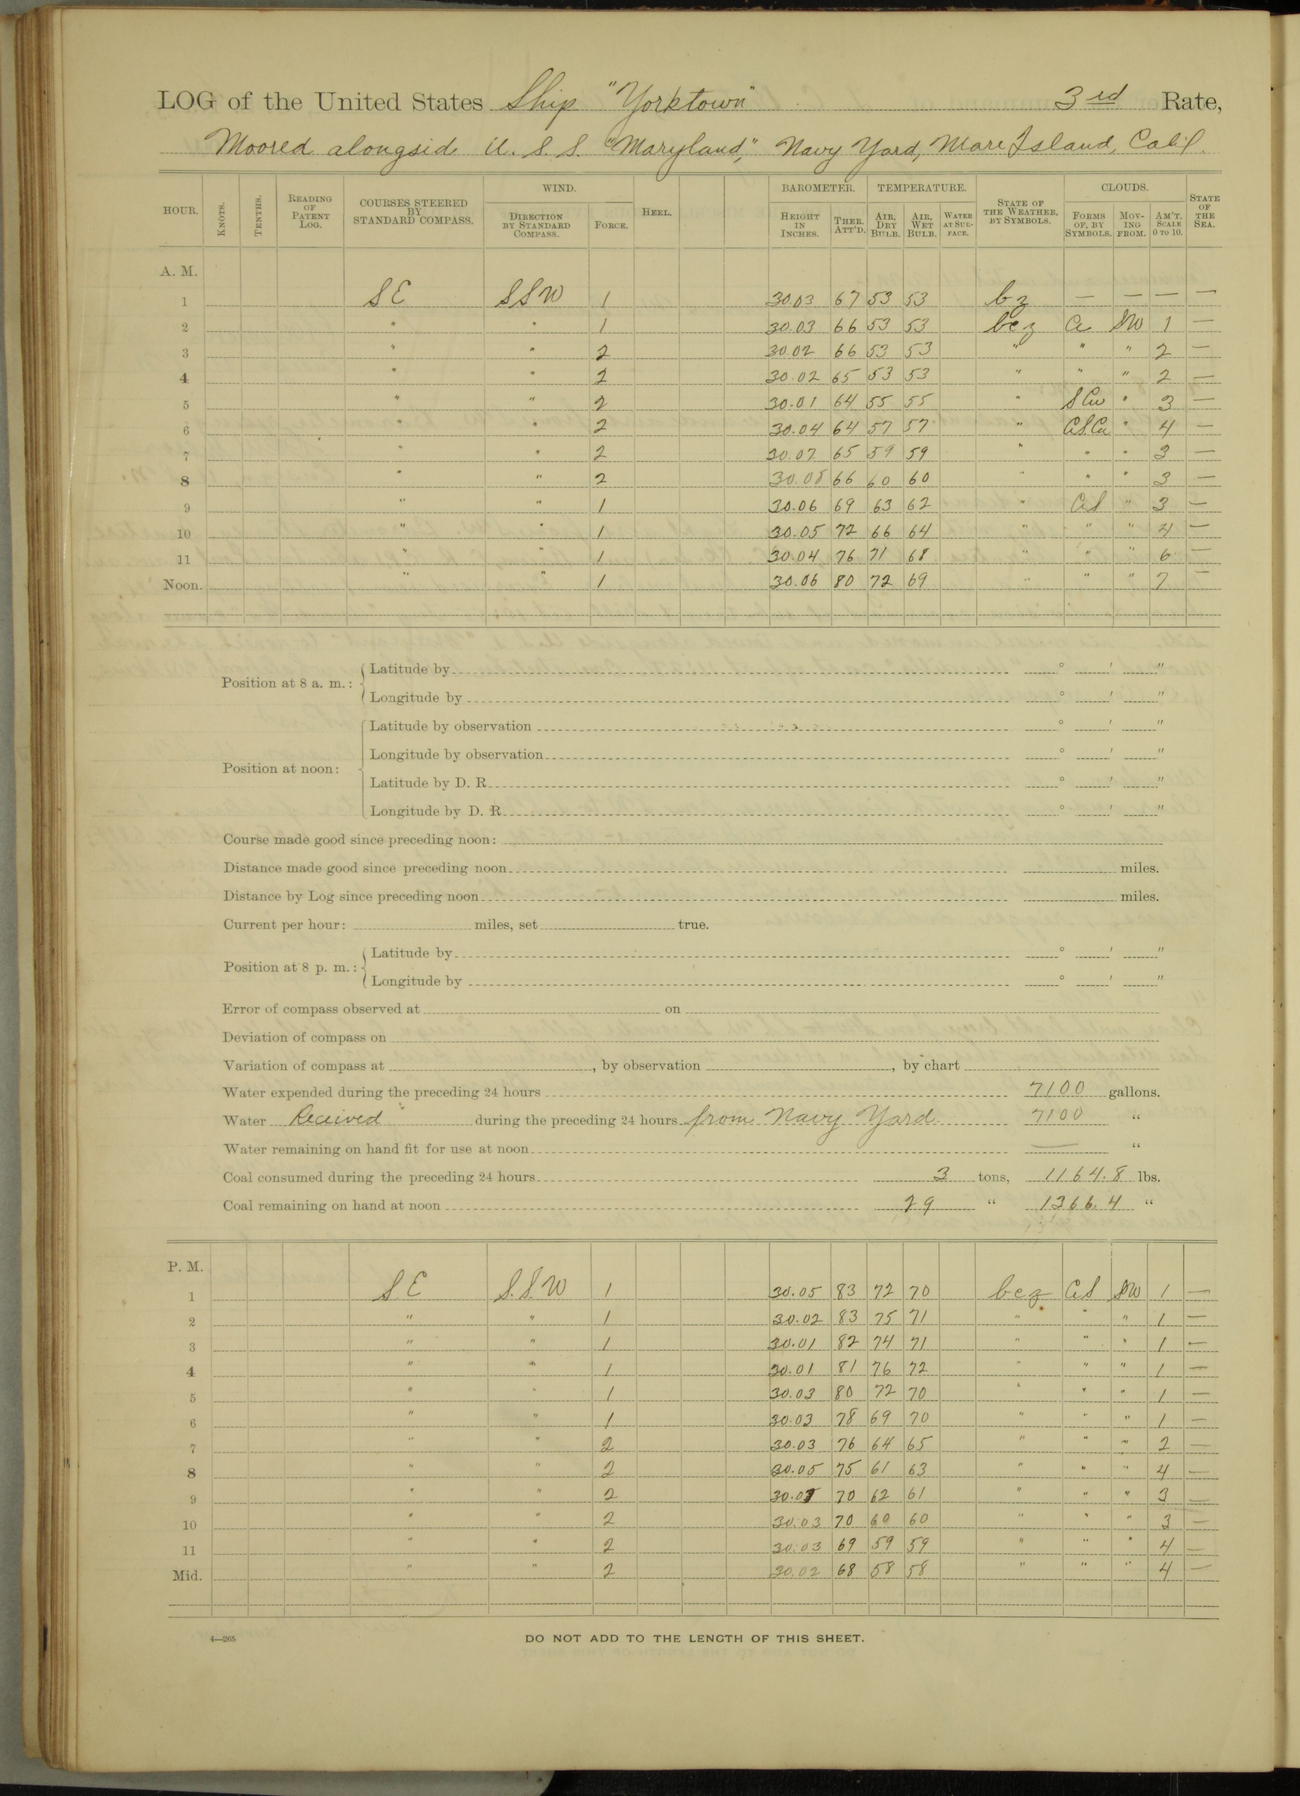 LOG of the United States Ship "Yorktown" 3rd Rate,
Moored alongside U. S. S. "Maryland," Navy Yard, Mare Island, Calif.
HOUR. KNOTS. TENTHS. READING OF PATENT LOG. COURSES STEERED BY STANDARD COMPASS. WIND. DIRECTION BY STANDARD COMPASS. FORCE. HEEL. BAROMETER. HEIGHT IN INCHES. THER. ATT'D. TEMPERATURE. AIR, DRY BULB. AIR, WET BULB. WATER AT SURFACE. STATE OF THE WEATHER, BY SYMBOLS. CLOUDS. FORMS OF, BY SYMBOLS. MOVING FROM. AM'T. SCALE 0 TO 10. STATE OF THE SEA.
A. M.
1 SE SSW 1 30.03 67 53 53 bz — — — —
2 " " 1 30.03 66 53 53 bcz Ci SW 1 —
3 " " 2 30.02 66 53 53 " " " 2 —
4 " " 2 30.02 65 53 53 " " " 2 —
5 " " 2 30.01 64 55 55 " SCu " 3 —
6 " " 2 30.04 64 57 57 " " 4 —
7 " " 2 30.07 65 59 59 " " " 3 —
8 " " 2 30.08 66 60 60 " " " 3 —
9 " " 1 30.06 69 63 62 " CiS " 3 —
10 " " 1 30.05 72 66 64 " " " 4 —
11 " " 1 30.04 76 71 68 " " " 6 —
Noon. " " 1 30.06 80 72 69 " " " 7 —
Position at 8 a. m.: Latitude by ° ' "
Longitude by ° ' "
Position at noon: Latitude by observation ° ' "
Longitude by observation ° ' "
Latitude by D. R. ° ' "
Longitude by D. R. ° ' "
Course made good since preceding noon:
Distance made good since preceding noon miles.
Distance by Log since preceding noon miles.
Current per hour: miles, set true.
Position at 8 p. m.: Latitude by ° ' "
Longitude by ° ' "
Error of compass observed at on
Deviation of compass on
Variation of compass at , by observation , by chart
Water expended during the preceding 24 hours 7100 gallons.
Water Received during the preceding 24 hours from Navy Yard 7100 "
Water remaining on hand fit for use at noon — "
Coal consumed during the preceding 24 hours 3 tons, 1164.8 lbs.
Coal remaining on hand at noon 29 " 1366.4 "
P. M.
1 SE S.S.W 1 30.05 83 72 70 bcz CiS SW 1 —
2 " " 1 30.02 83 75 71 " " " 1 —
3 " " 1 30.01 82 74 71 " " " 1 —
4 " " 1 30.01 81 76 72 " " " 1 —
5 " " 1 30.03 80 72 70 " " " 1 —
6 " " 1 30.03 78 69 70 " " " 1 —
7 " " 2 30.03 76 64 65 " " " 2 —
8 " " 2 30.05 75 61 63 " " " 4 —
9 " " 2 70 62 61 " " " 3 —
10 " " 2 30.03 70 60 60 " " " 3 —
11 " " 2 30.03 69 59 59 " " " 4 —
Mid. " " 2 30.02 68 58 58 " " " 4 —
4—265
DO NOT ADD TO THE LENGTH OF THIS SHEET.